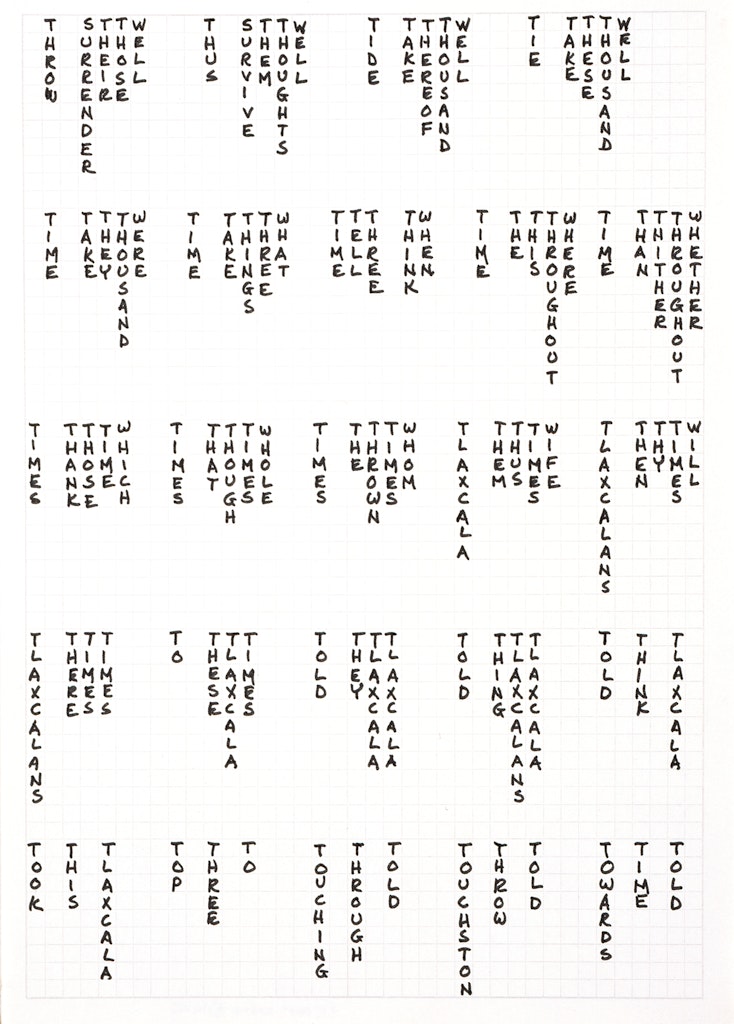 THROW
SURRENDER
THEIR
THOSE
WELL
THUS
SURVIVE
THEM
THOUGHTS
WELL
TIDE
TAKE
THEREOF
THOUSAND
WELL
TIE
TAKE
THESE
THOUSAND
WELL
TIME
TAKE
THEY
THOUSAND
WERE
TIME
TAKE
THINGS
THREE
WHAT
TIME
TELL
THREE
THINK
WHEN
TIME
THE
THIS
THROUGHOUT
WHERE
TIME
THAN
THITHER
THROUGHOUT
WHETHER
TIMES
THANK
THOSE
TIME
WHICH
TIMES
THAT
THOUGH
TIMES
WHOLE
TIMES
THE
THROWN
TIMES
WHOM
TLAXCALA
THEM
THUS
TIMES
WIFE
TLAXCALANS
THEN
THY
TIMES
WILL
TLAXCALANS
THERE
TIMES
TIMES
TO
THESE
TLAXCALA
TIMES
TOLD
THEY
TLAXCALA
TLAXCALA
TOLD
THING
TLAXCALANS
TLAXCALA
TOLD
THINK
TLAXCALA
TOOK
THIS
TLAXCALA
TOP
THREE
TO
TOUCHING
THROUGH
TOLD
TOUCHSTON
THROW
TOLD
TOWARDS
TIME
TOLD